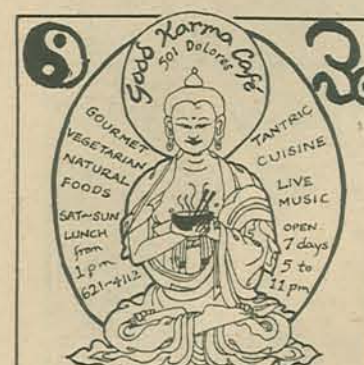 Good Karma Café
501 Dolores
GOURMET
VEGETARIAN
NATURAL
FOODS
SAT~SUN
LUNCH
from
1 pm
621~4112
TANTRIC
CUISINE
LIVE
MUSIC
OPEN
7 days
5 to
11 pm
ॐ